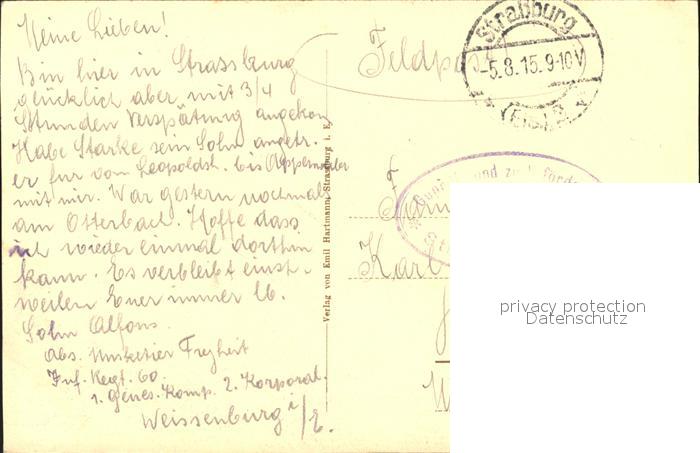 Meine Lieben!
Bin hier in Strassburg
glücklich aber mit 3/4
Stunden Verspätung angekom
Habe Starke sein Sohn angetr.
er fur von Leopoldsh. bis Appenweier
mit mir. War gestern nochmals
am Otterbach. Hoffe dass
ich wieder einmal dorthin
kann. Es verbleibt einst-
weilen Euer immer lb.
Sohn Alfons.
Abs. Musketier Freyheit
Inf. Regt. 60.
1. Genes. Komp. 2. Korporal.
Weissenburg i/E.
Verlag von Emil Hartmann, Strassburg i. E.
Feldpost
Straßburg
-5.8.15.9-10V
(Els.)
Karl
privacy protection
Datenschutz